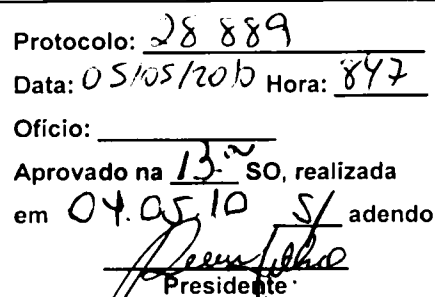 Protocolo: 28 889
Data: 05/05/2010 Hora: 847
Ofício:
Aprovado na 13.ª SO, realizada
em 04.05.10 S/ adendo
Presidente